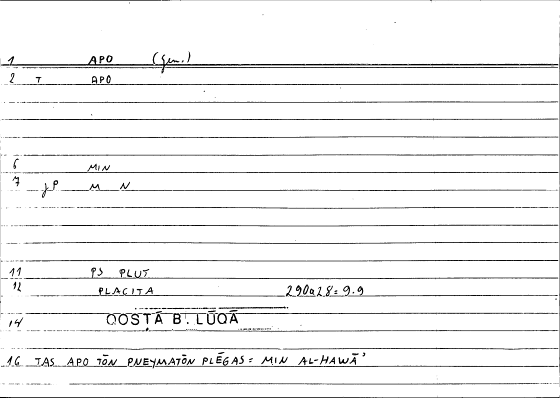 1 APO (gen.)
2 T APO
6 MIN
7 JP M N
11 PS PLUT
12 PLACITA 290a28=9.9
14 QOSṬĀ B. LŪQĀ
16 TAS APO TŌN PNEYMATŌN PLĒGAS = MIN AL-HAWĀ'